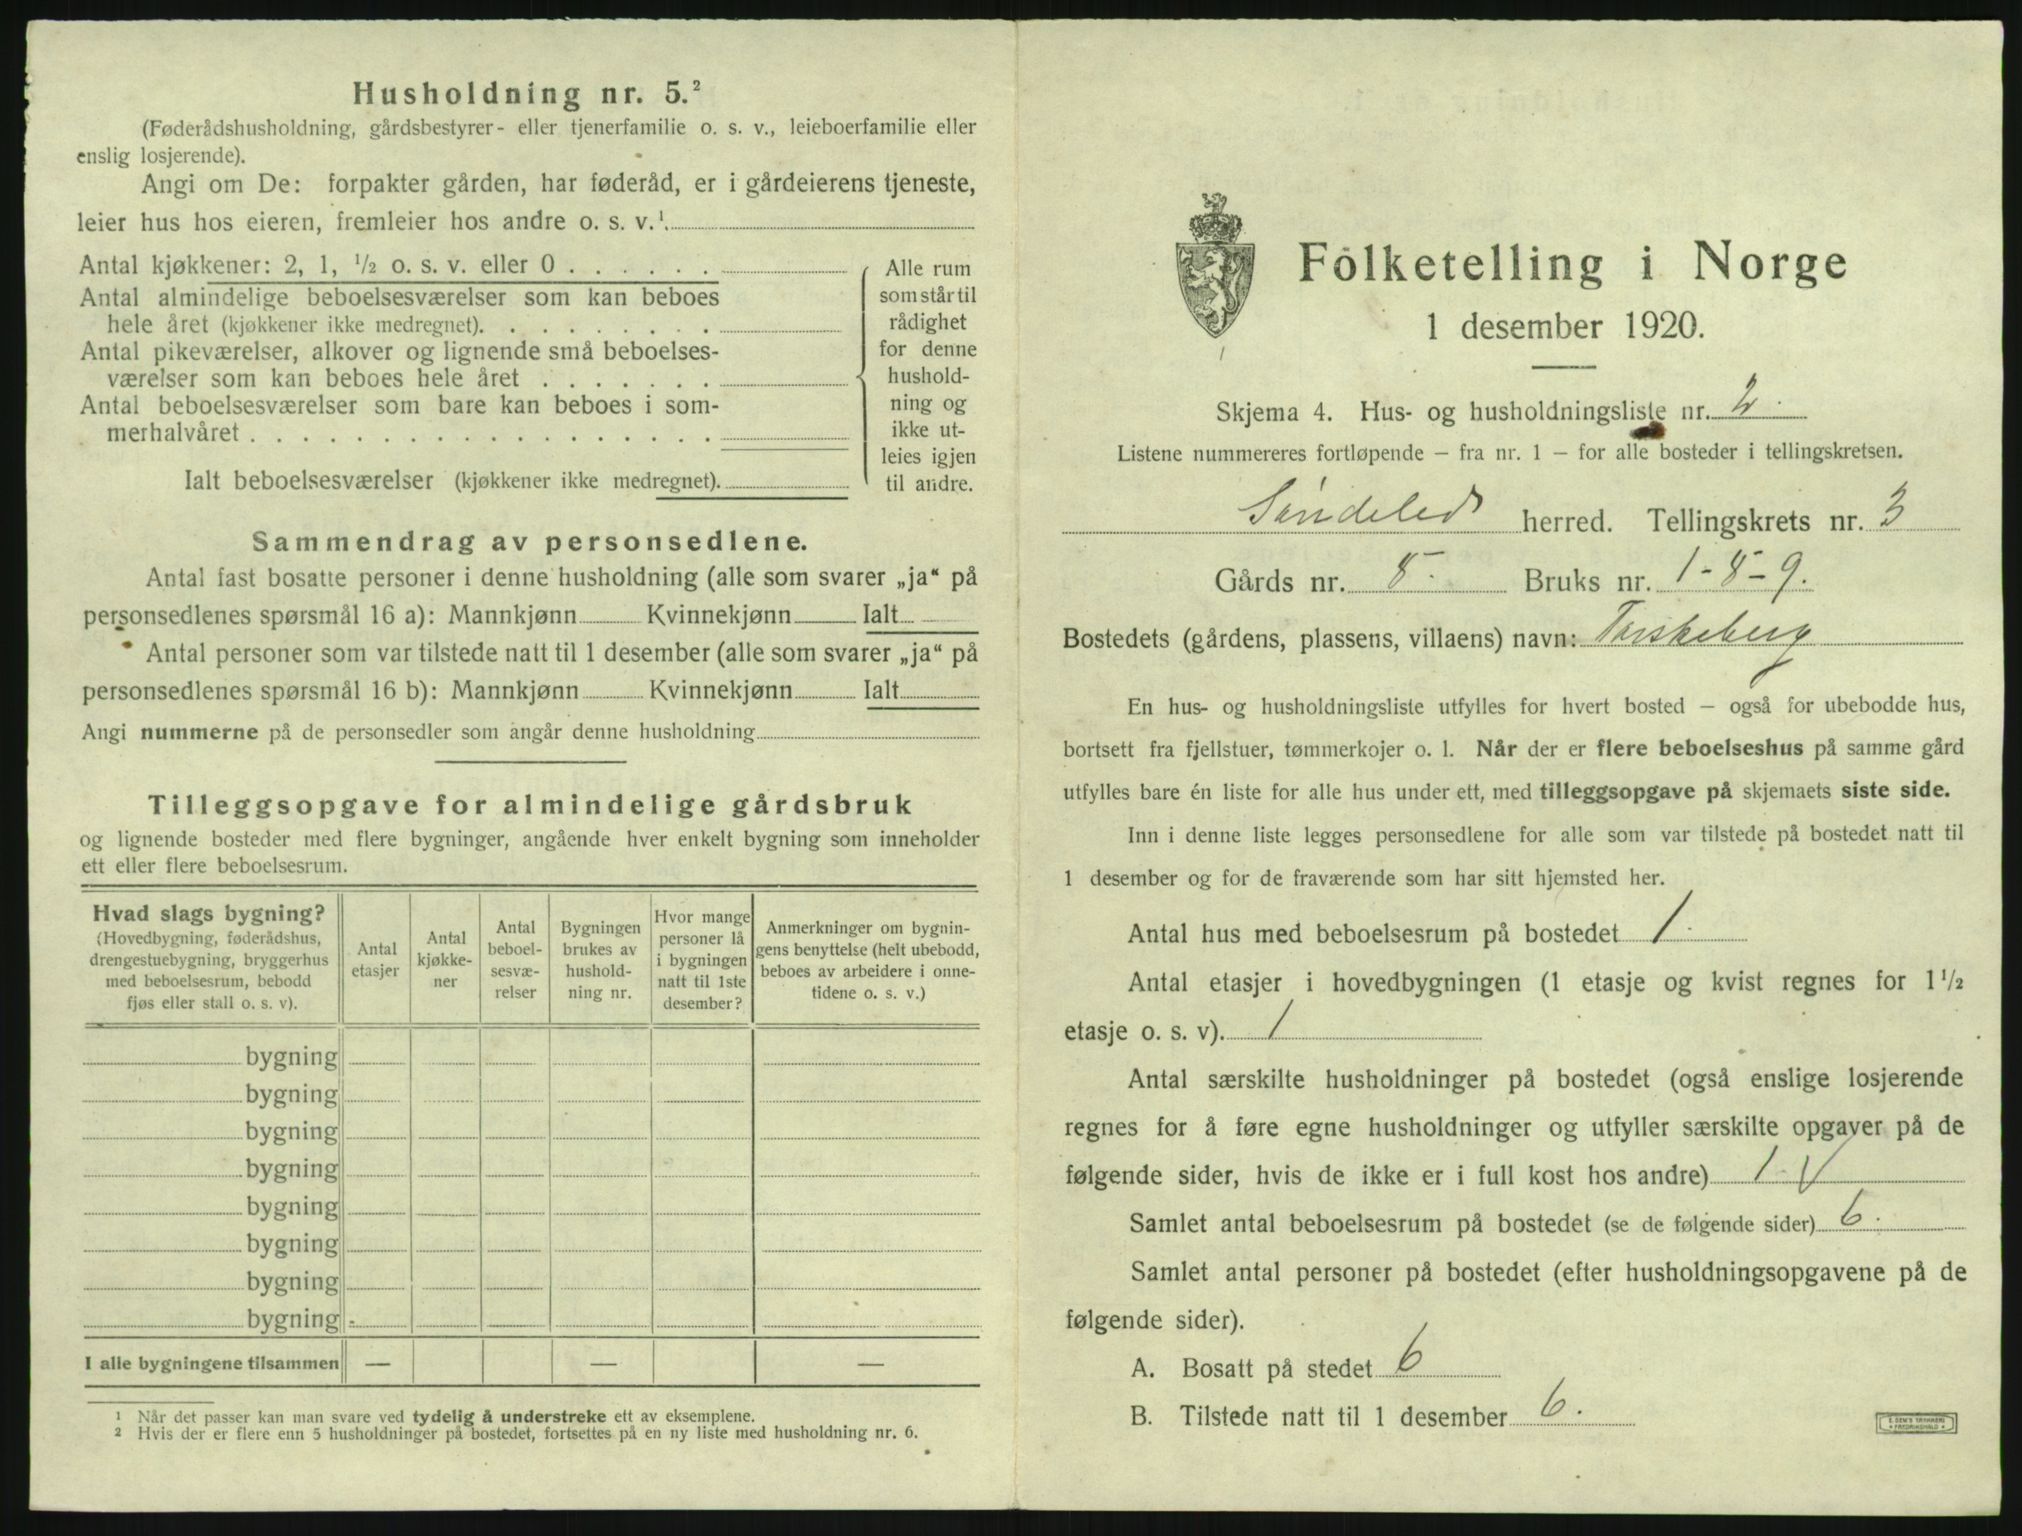 Husholdning nr. 5.²
(Føderådshusholdning, gårdsbestyrer- eller tjenerfamilie o. s. v., leieboerfamilie eller
enslig losjerende).
Angi om De: forpakter gården, har føderåd, er i gårdeierens tjeneste,
leier hus hos eieren, fremleier hos andre o. s. v.¹.
Antal kjøkkener: 2, 1, ½ o. s. v. eller 0 . . . . . .
Antal almindelige beboelsesværelser som kan beboes
hele året (kjøkkener ikke medregnet). . . . . . . . .
Antal pikeværelser, alkover og lignende små beboelses-
værelser som kan beboes hele året . . . . . . .
Antal beboelsesværelser som bare kan beboes i som-
merhalvåret . . . . . . . . . . . . . . . . .
Ialt beboelsesværelser (kjøkkener ikke medregnet).
Alle rum
som står til
rådighet
for denne
hushold-
ning og
ikke ut-
leies igjen
til andre.
Sammendrag av personsedlene.
Antal fast bosatte personer i denne husholdning (alle som svarer „ja“ på
personsedlenes spørsmål 16 a): Mannkjønn Kvinnekjønn Ialt
Antal personer som var tilstede natt til 1 desember (alle som svarer „ja“ på
personsedlenes spørsmål 16 b): Mannkjønn Kvinnekjønn Ialt
Angi nummerne på de personsedler som angår denne husholdning
Tilleggsopgave for almindelige gårdsbruk
og lignende bosteder med flere bygninger, angående hver enkelt bygning som inneholder
ett eller flere beboelsesrum.
Hvad slags bygning?
(Hovedbygning, føderådshus,
drengestuebygning, bryggerhus
med beboelsesrum, bebodd
fjøs eller stall o. s. v).
Antal
etasjer
Antal
kjøkke-
ner
Antal
beboel-
sesvæ-
relser
Bygningen
brukes av
hushold-
ning nr.
Hvor mange
personer lå
i bygningen
natt til 1ste
desember?
Anmerkninger om bygnin-
gens benyttelse (helt ubebodd,
beboes av arbeidere i onne-
tidene o. s. v.)
bygning
bygning
bygning
bygning
bygning
bygning
bygning
bygning
I alle bygningene tilsammen — — —
¹ Når det passer kan man svare ved tydelig å understreke ett av eksemplene.
² Hvis der er flere enn 5 husholdninger på bostedet, fortsettes på en ny liste med husholdning nr. 6.
Folketelling i Norge
1 desember 1920.
Skjema 4. Hus- og husholdningsliste nr. 2.
Listene nummereres fortløpende — fra nr. 1 — for alle bosteder i tellingskretsen.
Søndeled herred. Tellingskrets nr. 3
Gårds nr. 8. Bruks nr. 1-8-9.
Bostedets (gårdens, plassens, villaens) navn: Torskeberg
En hus- og husholdningsliste utfylles for hvert bosted — også for ubebodde hus,
bortsett fra fjellstuer, tømmerkojer o. l. Når der er flere beboelseshus på samme gård
utfylles bare én liste for alle hus under ett, med tilleggsopgave på skjemaets siste side.
Inn i denne liste legges personsedlene for alle som var tilstede på bostedet natt til
1 desember og for de fraværende som har sitt hjemsted her.
Antal hus med beboelsesrum på bostedet 1.
Antal etasjer i hovedbygningen (1 etasje og kvist regnes for 1½
etasje o. s. v). 1
Antal særskilte husholdninger på bostedet (også enslige losjerende
regnes for å føre egne husholdninger og utfyller særskilte opgaver på de
følgende sider, hvis de ikke er i full kost hos andre) 1. √
Samlet antal beboelsesrum på bostedet (se de følgende sider) 6.
Samlet antal personer på bostedet (efter husholdningsopgavene på de
følgende sider).
A. Bosatt på stedet 6
B. Tilstede natt til 1 desember 6.